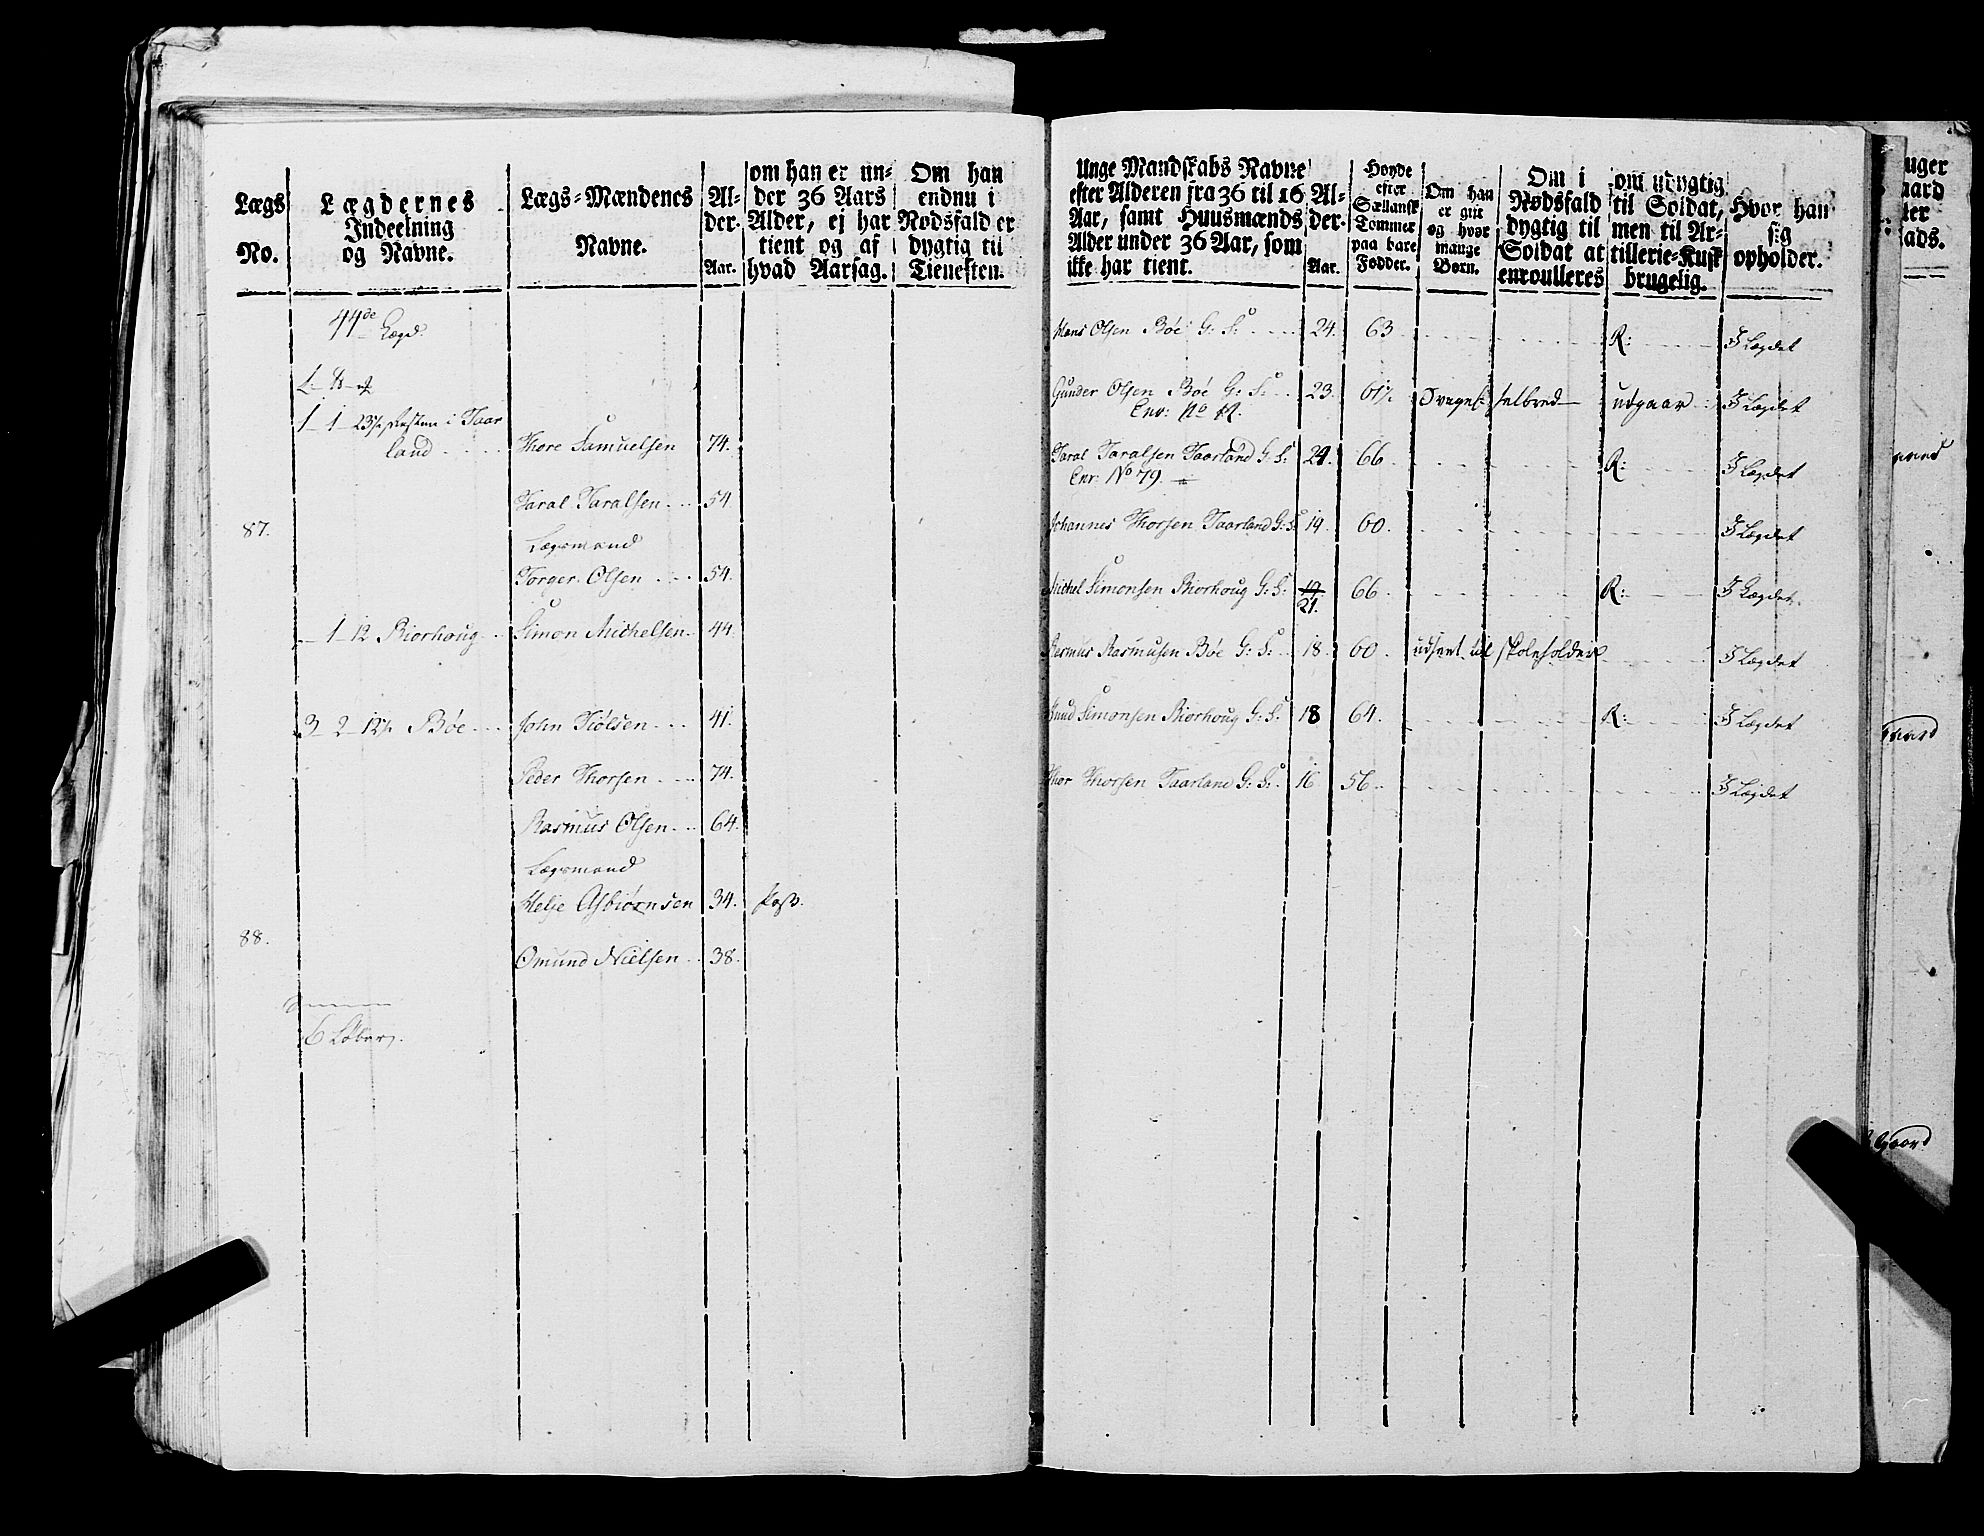 Lægs No.
Lægdernes Indeelning og Navne.
Lægs-Mændenes Navne.
Al-der. Aar.
om han er un-der 36 Aars Alder, ej har tient og af hvad Aarsag.
Om han endnu i Nødsfald er dygtig til Tienesten.
44de Lægd.
1 1 23 Resten i Taar
land Thore Samuelsen 74.
Taral Taralsen 54
87. Lægsmand
Torger Olsen 54.
1 12 Biorhoug Simon Michelsen 44
3 2 12½ Bøe John Tiølsen 41.
Peder Thorsen 74.
Rasmus Olsen 64.
Lægsmand
Helje Asbiørnsen 34.
88.
Omund Nielsen 38.
Unge Mandskabs Navne efter Alderen fra 36 til 16 Aar, samt Huusmænds Alder under 36 Aar, som ikke har tient.
Al-der. Aar.
Høyde efter Sællansk Tommer paa bare Fødder.
Om han er gift og hvor mange Børn.
Om i Nødsfald dygtig til Soldat at enroulleres
om udygtig til Soldat, men til Ar-tillerie-Kusk brugelig.
Hvor han sig opholder.
Hans Olsen Bøe G: S: 24. 63 R: I Lægdet
Gunder Olsen Bøe G: S: 23. 61½ Svagel: helbred udgaar I Lægdet
Enr: No
Taral Taralsen Taarland G: S: 24. 66 R: I Lægdet
Enr: No 79.
Johannes Thorsen Taarland G: S: 19 60. I Lægdet
Michel Simonsen Biorhoug G: S: 19 66 R: I Lægdet.
21.
Rasmus Rasmusen Bøe G: S: 18 60 udseet til skoleholder I Lægdet
Knud Simonsen Biorhoug G: S: 18 64. R: I Lægdet
Thor Thorsen Taarland G: S: 16 56 I Lægdet